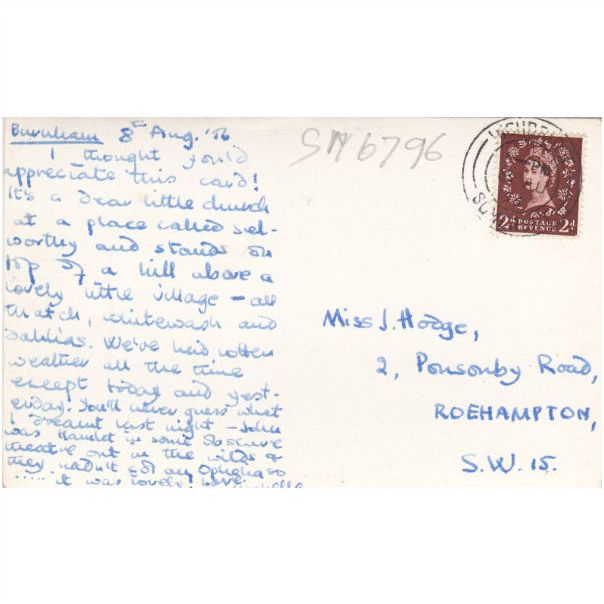 Burnham 8th Aug. '56
I thought you'd
appreciate this card!
It's a dear little church
at a place called Sel-
worthy and stands on
top of a hill above a
lovely little village - all
thatch, whitewash and
dahlias. We've had rotten
weather all the time
except today and yest-
erday. You'll never guess what
I dreamt last night - John
was Hamlet in some obscure
theatre out in the wilds &
they hadn't got any Ophelia so
..... it was lovely. Love
SN 6796
2d POSTAGE REVENUE 2d
Miss J. Hodge,
2, Ponsonby Road,
ROEHAMPTON,
S.W. 15.